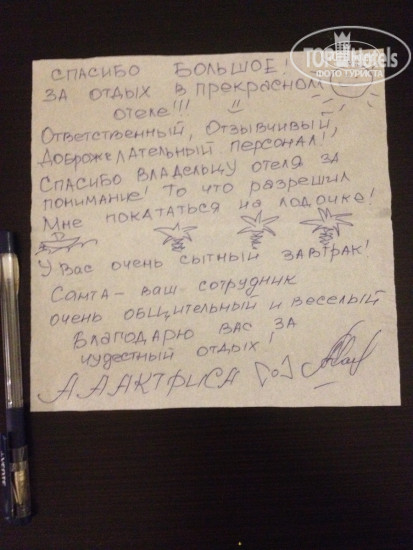 TOPHotels
ФОТО ТУРИСТА
СПАСИБО БОЛЬШОЕ!
ЗА ОТДЫХ В ПРЕКРАСНОМ
ОТЕЛЕ!!!
ОТВЕТСТВЕННЫЙ, ОТЗЫВЧИВЫЙ,
ДОБРОЖЕЛАТЕЛЬНЫЙ ПЕРСОНАЛ!
СПАСИБО ВЛАДЕЛЬЦУ ОТЕЛЯ ЗА
ПОНИМАНИЕ! ТО ЧТО РАЗРЕШИЛ
МНЕ ПОКАТАТЬСЯ НА ЛОДОЧКЕ!
У ВАС ОЧЕНЬ СЫТНЫЙ ЗАВТРАК!
САНТА - ВАШ СОТРУДНИК
ОЧЕНЬ ОБЩИТЕЛЬНЫЙ И ВЕСЕЛЫЙ
БЛАГОДАРЮ ВАС ЗА
ЧУДЕСТНЫЙ ОТДЫХ!
А А АКТРИСА